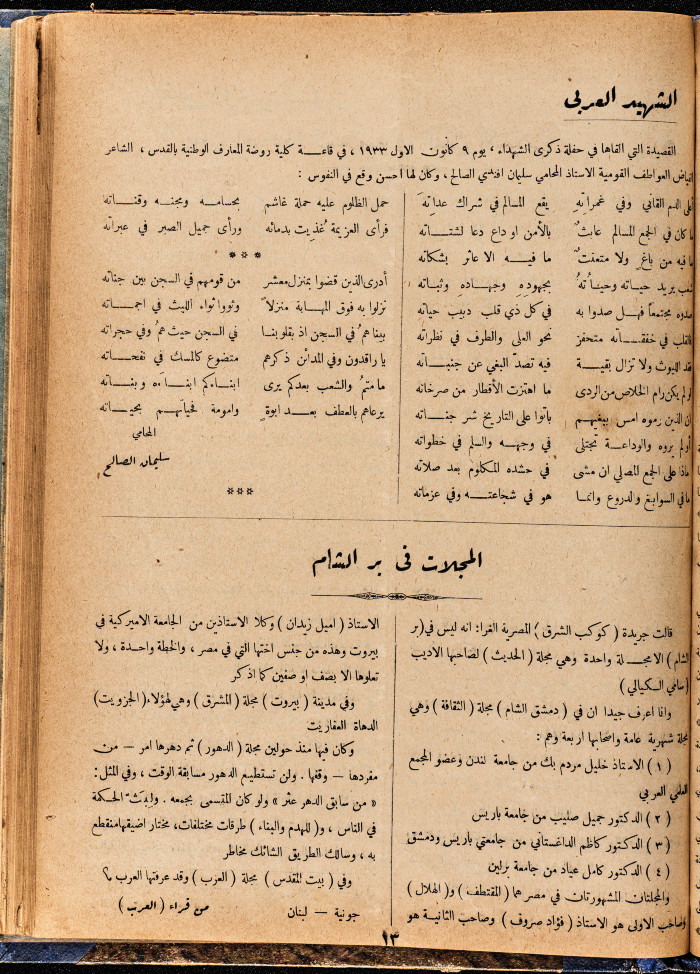 الشهيد العربي
القصيدة التي القاها في حفلة ذكرى الشهداء ، يوم ٩ كانون الاول ١٩٣٣ ، في قاعة كلية روضة المعارف الوطنية بالقدس ، الشاعر
العواطف القومية الاستاذ المحامي سليمان افندي الصالح ، وكان لها أحسن وقع في النفوس :
الدم القاني وفي غمراته يقع المسالم في شراك عداته
ما كان في الجمع المسالم عابث بالأمن او داع دعا لشتاته
ما فيه من باغ ولا متعنت ما فيه الا عاثر بشكاته
شعب يريد حياته وحياته بجهوده وجهاده وثباته
صدوه مجتمعا فهل صدوا به في كل ذي قلب دبيب حياته
فالقلب في خفقاته متحفز نحو العلى والطرف في نظراته
الليوث ولا تزال بقية فيه تصد البغي عن جنباته
او لم يكن رام الخلاص من الردى ما اهتزت الأقطار من صرخاته
ان الذين رموه امس ببغيهم باتوا على التاريخ شر جناته
أو لم يروه والوداعة تجتلى في وجهه والسلم في خطواته
ماذا على الجمع المصلي ان مشى في حشده المكلوم بعد صلاته
ما في السوابغ والدروع وانما هو في شجاعته وفي عزماته
حمل الظلوم عليه حملة غاشم بحسامه ومجنه وقناته
فرأى العزيمة غُذيت بدمائه ورأى جميل الصبر في عبراته
***
أدرى الذين قضوا بمنزل معشر من قومهم في السجن بين جناته
نزلوا به فوق المهابة منزلاً وثووا ثواء الليث في اجماته
بيناهمُ في السجن اذ بقلوبنا في السجن حيث همُ وفي حجراته
يا راقدون وفي المدائن ذكرهم متضوع كالمسك في نفحاته
ما متمُ والشعب بعدكم يرى ابناءكم ابناءه وبناته
يرعاهم بالعطف بعد ابوة وامومة فحياتهم بحياته
المحامي
سليمان الصالح
***
المجلات في بر الشام
قالت جريدة ( كوكب الشرق ) المصرية الغرا: انه ليس في ( بر
الشام ) الا مجلة واحدة وهي مجلة ( الحديث ) لصاحبها الاديب
( سامي الكيالي )
وانا اعرف جيدا ان في ( دمشق الشام ) مجلة ( الثقافة ) وهي
مجلة شهرية عامة واصحابها اربعة وهم :
( ١ ) الاستاذ خليل مردم بك من جامعة لندن وعضو المجمع
العلمي العربي
( ٢ ) الدكتور جميل صليب من جامعة باريس
( ٣ ) الدكتور كاظم الداغستاني من جامعتي باريس ودمشق
( ٤ ) الدكتور كامل عياد من جامعة برلين
والمجلتان المشهورتان في مصر هما ( المقتطف ) و( الهلال )
وصاحب الاولى هو الاستاذ ( فؤاد صروف ) وصاحب الثانية هو
الاستاذ ( اميل زيدان ) وكلا الاستاذين من الجامعة الاميركية في
بيروت وهذه من جنس اختها التي في مصر ، والخطة واحدة ، ولا
تعلوها الا بصف او صفين كما اذكر
وفي مدينة ( بيروت ) مجلة ( المشرق ) وهي لهؤلاء ( الجزويت )
الدهاة العفاريت
وكان فيها منذ حولين مجلة ( الدهور ) ثم دهرها امر — من
مفردها — وقفها . ولن تستطيع الدهور مسابقة الوقت ، وفي المثل :
« من سابق الدهر عثر » ولو كان المتسمى بجمعه . الحكمة
في الناس ، و( للهدم والبناء ) طرقات مختلفات ، مختار اضيقها منقطع
به ، وسالك الطريق الشائك مخاطر
وفي ( بيت المقدس ) مجلة ( العرب ) وقد عرفتها العرب
جونية — لبنان من قراء ( العرب )
١٣